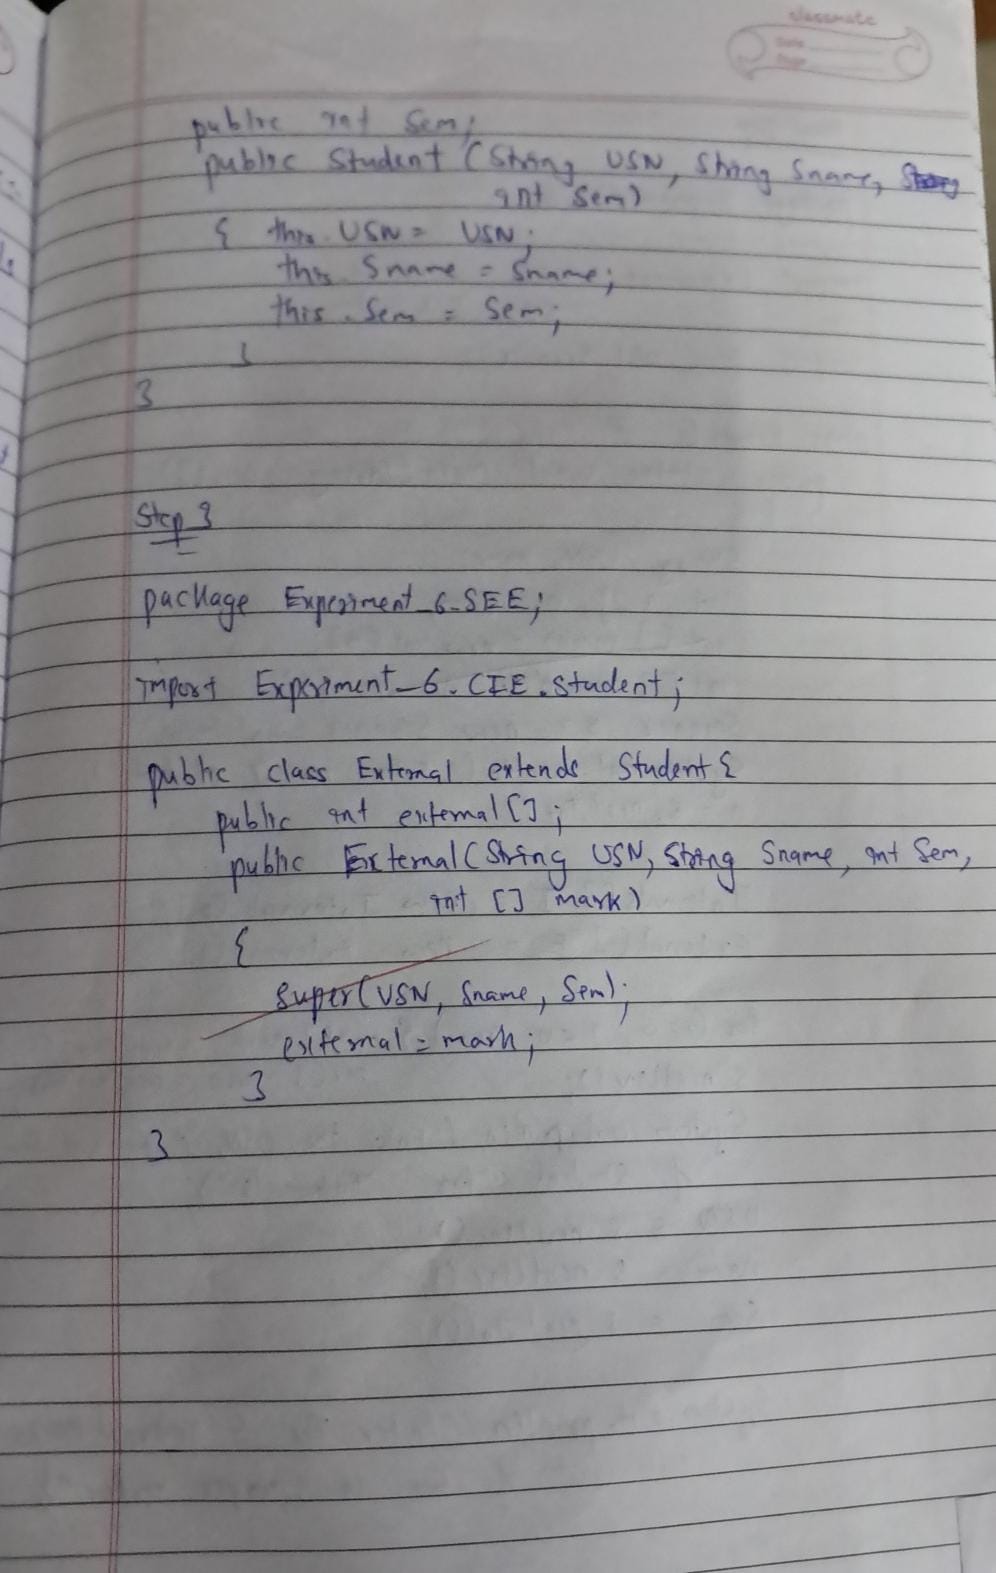 classmate
Date
Page
public int Sem;
public Student (String USN, String Sname,
int Sem)
{ this. USN = USN;
this Sname = Sname;
this. Sem = Sem;
}
}
Step 3
package Experiment_6.SEE;
import Experiment_6.CIE.Student;
public class External extends Student {
public int external[];
public External(String USN, String Sname, int Sem,
int [] mark)
{
super(USN, Sname, Sem);
external = mark;
}
}